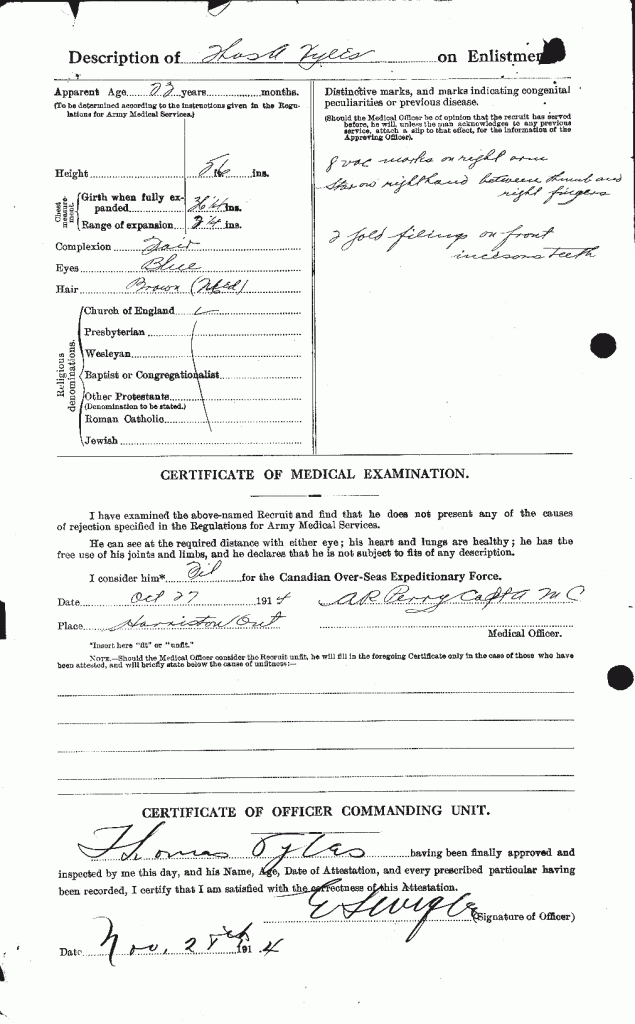 Description of Thos A Tyles on Enlistment
Apparent Age 23 years months.
(To be determined according to the instructions given in the Regulations for Army Medical Services.)
Height 5 ft. 6 ins.
Chest measurement.
Girth when fully expanded 36 1/2 ins.
Range of expansion ins.
Complexion Fair
Eyes Blue
Hair Brown (Med)
Religious denominations.
Church of England ✓
Presbyterian
Wesleyan
Baptist or Congregationalist
Other Protestants
(Denomination to be stated.)
Roman Catholic
Jewish
Distinctive marks, and marks indicating congenital
peculiarities or previous disease.
(Should the Medical Officer be of opinion that the recruit has served
before, he will, unless the man acknowledges to any previous
service, attach a slip to that effect, for the information of the
Approving Officer).
8 vac marks on right arm
Scar on right hand between thumb and
right fingers
2 Gold filings on front
incisors Teeth
CERTIFICATE OF MEDICAL EXAMINATION.
I have examined the above-named Recruit and find that he does not present any of the causes
of rejection specified in the Regulations for Army Medical Services.
He can see at the required distance with either eye; his heart and lungs are healthy; he has the
free use of his joints and limbs, and he declares that he is not subject to fits of any description.
I consider him* Fit for the Canadian Over-Seas Expeditionary Force.
Date Oct 27 1914 A R Perry Capt A M C
Place Harriston Ont
Medical Officer.
*Insert here "fit" or "unfit."
NOTE.—Should the Medical Officer consider the Recruit unfit, he will fill in the foregoing Certificate only in the case of those who have
been attested, and will briefly state below the cause of unfitness:—
CERTIFICATE OF OFFICER COMMANDING UNIT.
Thomas Tyles having been finally approved and
inspected by me this day, and his Name, Age, Date of Attestation, and every prescribed particular having
been recorded, I certify that I am satisfied with the correctness of this Attestation.
(Signature of Officer)
Date Nov. 1914